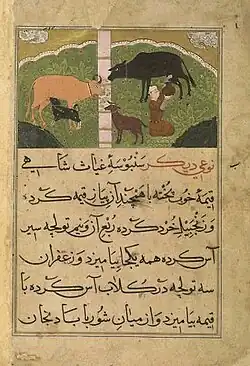 نوعی دیگر سنبوسهٔ غیاث شاهی
قیمهٔ خوب پخته با همچند آن پیاز قیمه کرده
و زنجبیل خرد کرده ربع آن و نیم تولچه سیر
آس کرده همه یکجا بیامیزد و زعفران
سه تولچه در گلاب آس کرده با
قیمه بیامیزد و از میان شوربا بادنجان